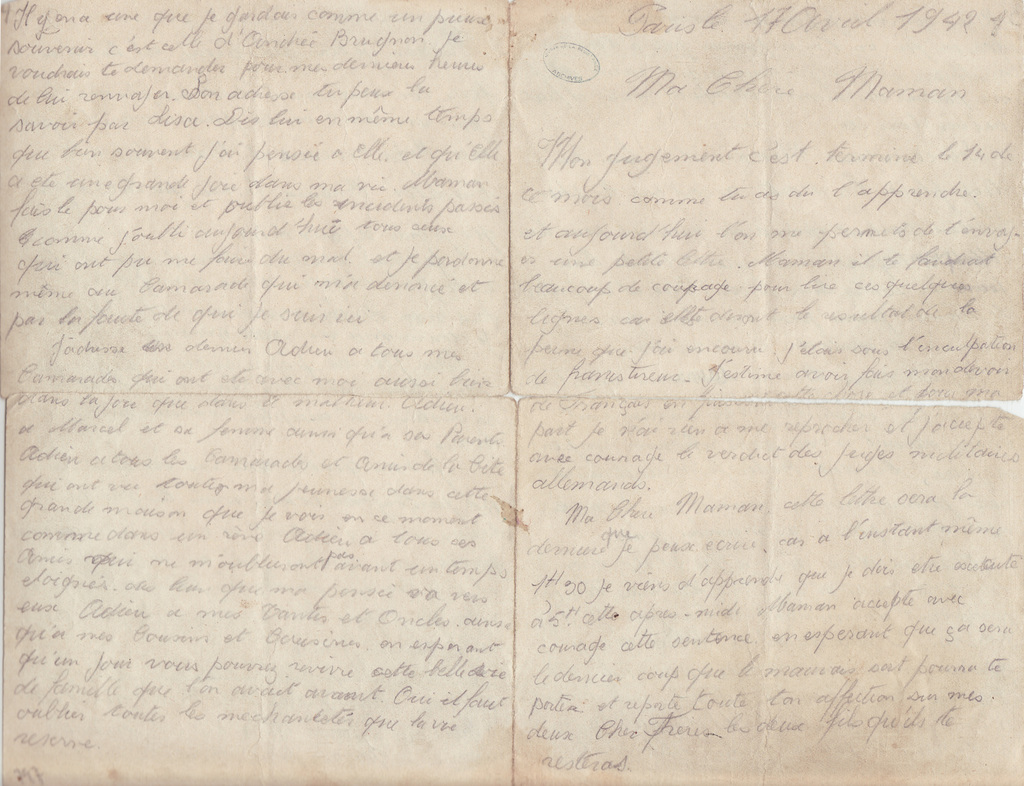 Paris le 17 Avril 1942
Ma Chère Maman
Mon jugement c'est terminé le 14 de
ce mois comme tu as du l'apprendre.
et aujourd'hui l'on me permets de t'envoy-
er une petite lettre. Maman il te faudrait
beaucoup de courage pour lire ces quelques
lignes car elle diront le resultat de la
peine que j'ai encouru. j'étais sous l'inculpation
de franctireur. J'estime avoir fais mon devoir
de Français en
part je n'ai rien a me reprocher et j'accepte
avec courage le verdict des juges militaires
allemands.
Ma Chère Maman cette lettre sera la
derniere que je peux ecrire. car a l'instant même
1H30 je viens d'apprendre que je dois etre executé
à 5H cette apres-midi Maman accepte avec
courage cette sentence en esperant que ça sera
le dernier coup que le mauvais sort pourra te
porter et reporte toute ton affection sur mes
deux Cher Freres les deux fils qu'ils te
resteras.
Il y en a une que je gardais comme un pieux
souvenir c'est celle d'Andrée Brugnon. je
voudrais te demander pour mes dernieres heures
de lui renvoyer. Son adresse tu peux la
savoir par Lisa. Dis lui en même temps
que bien souvent j'ai pensée a Elle. et qu'Elle
a ete une grande joie dans ma vie. Maman
fais le pour moi et oublie les incidents passés
comme j'oublie aujourd'hui tous ceux
qui ont pu me faire du mal. et je pardonne
même au Camarade qui m'a denoncé et
par la faute de qui je suis ici
J'adresse un dernier Adieu a tous mes
Camarades qui ont ete avec moi aussi bien
dans la joie que dans le malheur Adieu.
a Marcel et sa femme ainsi qu'a ses Parents
Adieu a tous les Camarades et Amis de la Cité
qui ont vu toute ma jeunesse dans cette
grande maison que je vois en ce moment
comme dans un rêve Adieu a tous ces
Amis qui ne m'oublieront pas avant un temps
eloigné. du lieu que ma pensée va vers
eux Adieu a mes Tantes et Oncles. ainsi
qu'a mes Cousins et Cousines. en esperant
qu'un jour vous pourrez revivre cette belle vie
de famille que l'on avait avant. Oui il faut
oublier toutes les mechancetés que la vie
reserve.